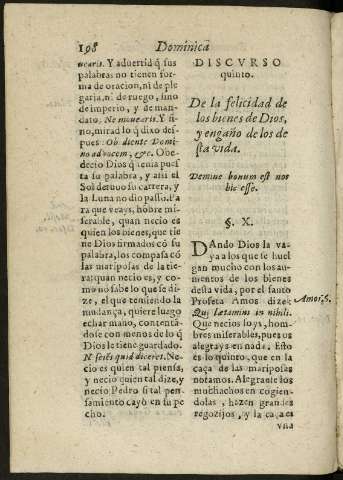 198 Dominica
uearis. Y aduertid q̃ sus
palabras no tienen for-
ma de oracion, ni de ple
garia, ni de ruego, sino
de imperio, y de man-
dato. Ne mouearis. Y si
no, mirad lo q̃ dixo des-
pues. Obediente Domi-
no ad vocem, &c. Obe-
decio Dios q̃ tenia pues
ta su palabra, y assi el
Sol detuuo su carrera, y
la Luna no dio passo. Pa
ra que veays, hõbre mi-
serable, quan necio es
quien los bienes, que tie
ne Dios firmados cõ su
palabra, los compasa cõ
las mariposas de la tie-
rra: quan necio es, y co-
mo no sabe lo que se di-
ze, el que teniendo la
mudança, quiere luego
echar mano, contentã-
dose con menos de lo q̃
Dios le tiene guardado.
Nesciẽs quid diceret. Ne
cio es quien tal piensa,
y necio quien tal dize, y
necio Pedro si tal pen-
samiento cayò en su pe
cho.
DISCVRSO
quinto.
De la felicidad de
los bienes de Dios,
y engaño de los de
sta vida.
Domine bonum est nos
hic esse.
§. X.
DAndo Dios la va-
ya a los que se huel
gan mucho con los au-
mentos de los bienes
desta vida, por el santo
Profeta Amos dize:
Amos 6.
Qui lætamini in nihili.
Que necios soys, hom-
bres miserables, pues os
alegrays en nada. Esto
es lo quinto, que en la
caça de las mariposas
notamos. Alegranse los
muchachos en cogien-
dolas, hazen grandes
regozijos, y la caça es
vna